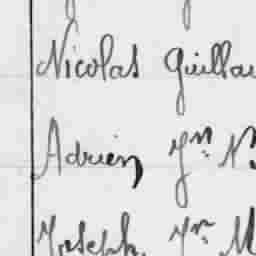 Nicolas Guillau
Adrien Jn N
Joseph. Jn M